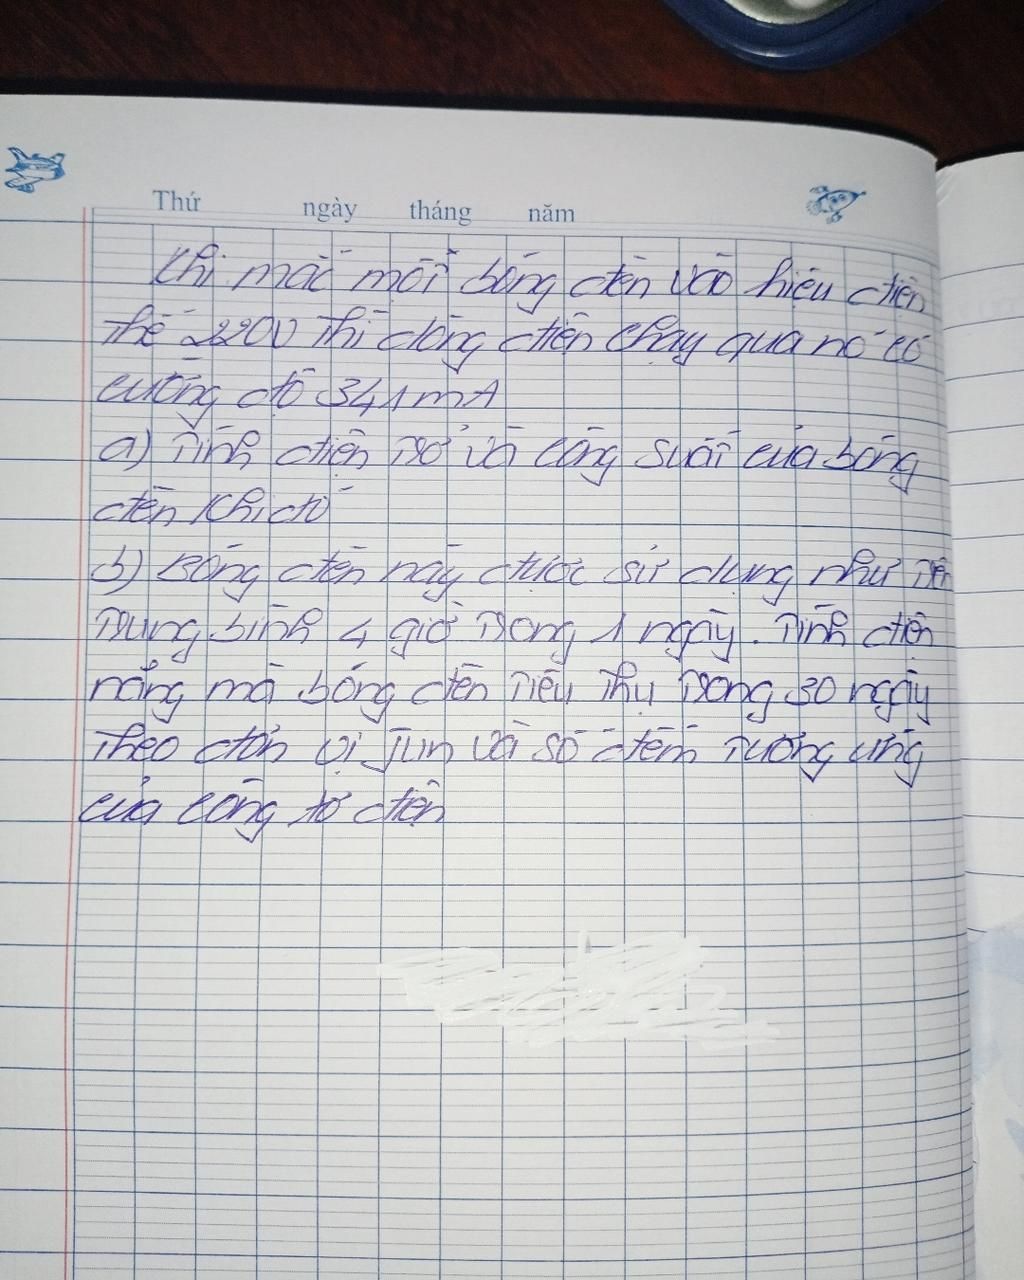 Thứ ngày tháng năm
Khi mắc một bóng đèn vào hiệu điện
thế 220V thì dòng điện chạy qua nó có
cường độ 341mA
a) Tính điện trở và công suất của bóng
đèn khi đó
b) Bóng đèn này được sử dụng như trên
trung bình 4 giờ trong 1 ngày. Tính điện
năng mà bóng đèn tiêu thụ trong 30 ngày
theo đơn vị jun và số đếm tương ứng
của công tơ điện